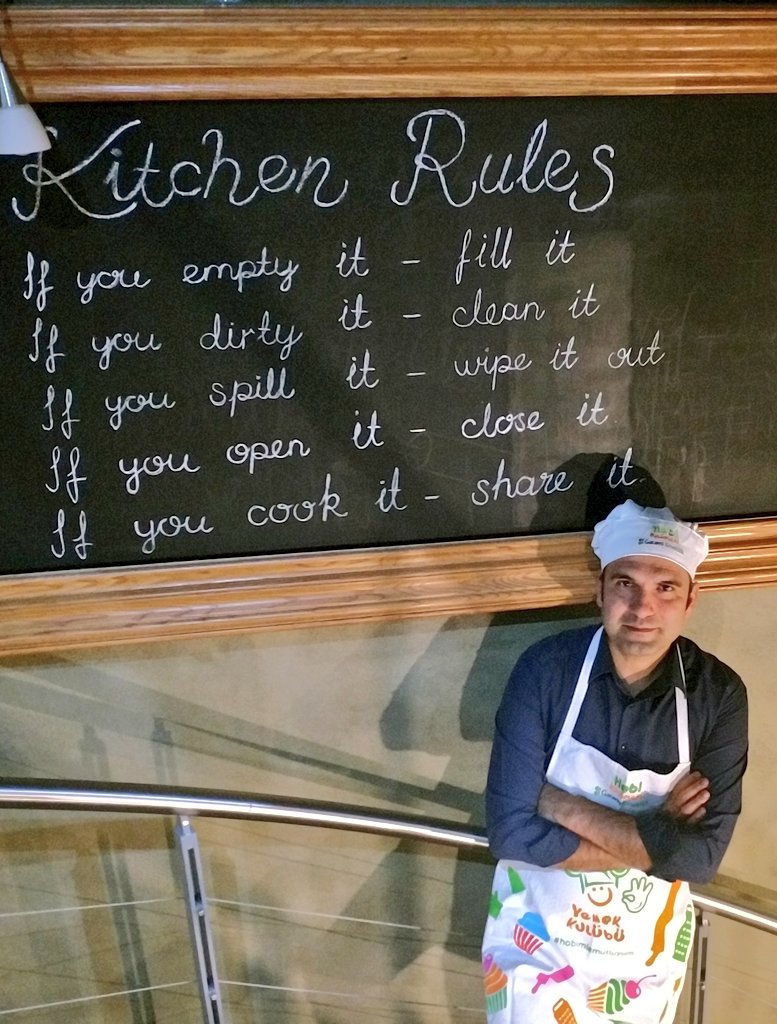 Kitchen Rules
If you empty it - fill it
If you dirty it - clean it
If you spill it - wipe it out
If you open it - close it
If you cook it - share it
Hobi
Hobi
Yemek
Kulübü